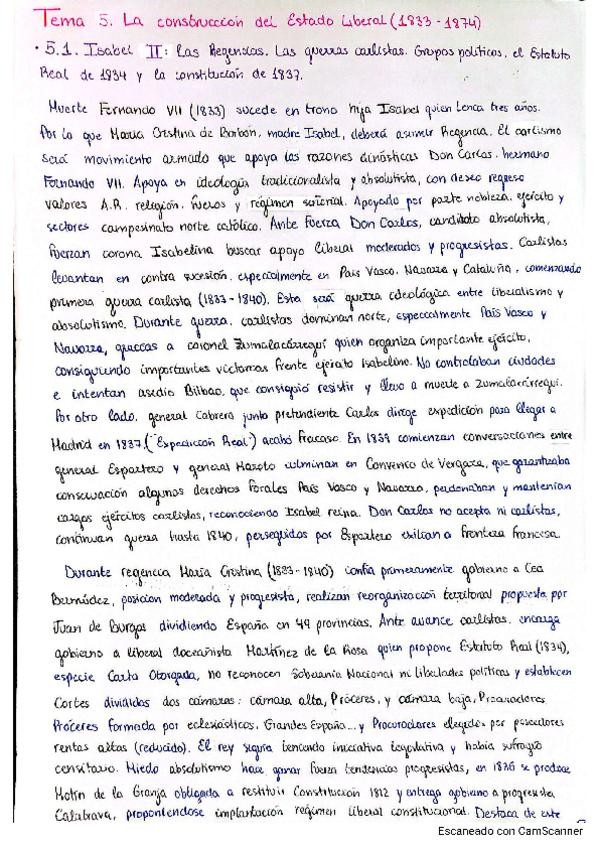 Tema 5. La construcción del Estado Liberal (1833-1874)
· 5.1. Isabel II: Las Regencias. Las guerras carlistas. Grupos políticos, el Estatuto
Real de 1834 y la constitución de 1837.
Muerte Fernando VII (1833) sucede en trono hija Isabel quien tenía tres años.
Por lo que María Cristina de Borbón, madre Isabel, deberá asumir Regencia. El carlismo
será movimiento armado que apoya las razones dinásticas Don Carlos, hermano
Fernando VII. Apoya en ideología tradicionalista y absolutista, con deseo regreso
valores A.R. religión, fueros y régimen señorial. Apoyado por parte nobleza, ejército y
sectores campesinato norte católico. Ante fuerza Don Carlos, candidato absolutista,
fuerzan corona Isabelina buscar apoyo liberal moderados y progresistas. Carlistas
levantan en contra sucesión, especialmente en País Vasco, Navarra y Cataluña, comenzando
primera guerra carlista (1833-1840). Esta será guerra ideológica entre liberalismo y
absolutismo. Durante guerra, carlistas dominan norte, especialmente País Vasco y
Navarra, gracias a coronel Zumalacárregui quien organiza importante ejército,
consiguiendo importantes victorias frente ejército Isabelino. No controlaban ciudades
e intentan asedio Bilbao, que consiguió resistir y llevo a muerte a Zumalacárregui.
Por otro lado, general Cabrera junto pretendiente Carlos dirige expedición para llegar a
Madrid en 1837 ("Expedición Real") acabó fracaso. En 1839 comienzan conversaciones entre
general Espartero y general Maroto culminan en Convenio de Vergara, que garantizaba
conservación algunos derechos forales País Vasco y Navarra, perdonaban y mantenían
cargos ejércitos carlistas, reconociendo Isabel reina. Don Carlos no acepta ni carlistas,
continuan guerra hasta 1840, perseguidos por Espartero exilian a frontera francesa.
Durante regencia María Cristina (1833-1840) confía primeramente gobierno a Cea
Bermúdez, posición moderada y progresista, realizan reorganización territorial propuesta por
Juan de Burgos dividiendo España en 49 provincias. Ante avance carlistas, encarga
gobierno a liberal doceañista Martínez de la Rosa quien propone Estatuto Real (1834),
especie Carta Otorgada, no reconocen Soberanía Nacional ni libertades políticas y establecen
Cortes divididas dos cámaras: cámara alta, Próceres, y cámara baja, Procuradores.
Próceres formada por eclesiásticos, Grandes España... y Procuradores elegidos por poseedores
rentas altas (reducido). El rey seguía teniendo iniciativa legislativa y había sufragio
censitario. Miedo absolutismo hace ganar fuerza tendencias progresistas, en 1836 se produce
Motín de la Granja obligada a restituir Constitución 1812 y entrega gobierno a progresista
Calatrava, proponiendose implantación régimen liberal constitucional. Destaca de este
Escaneado con CamScanner